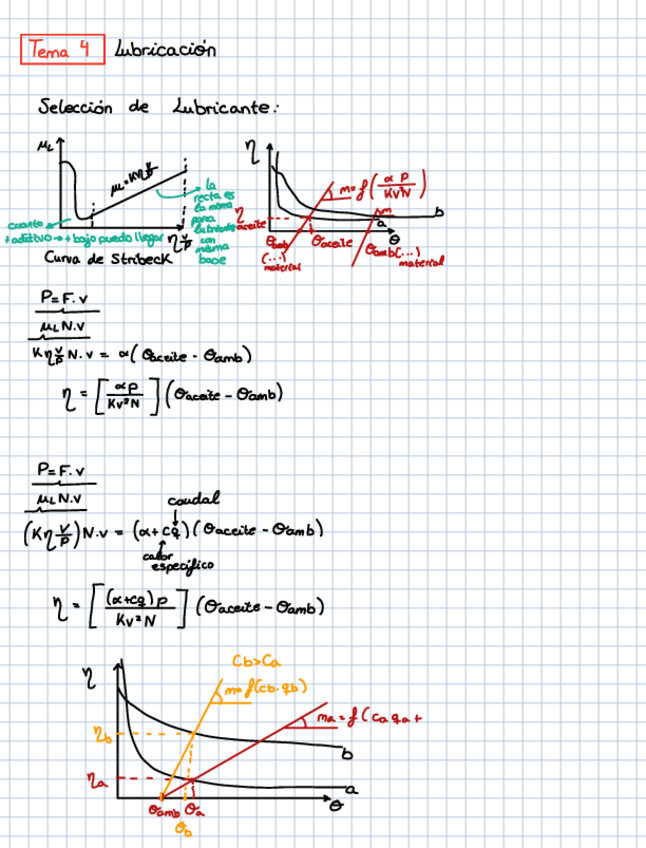 Tema 4 Lubricación
Selección de Lubricante:
μL
μL=Kη v/p
la
recta es
la misma
para
lubricante
con
misma
base
cuanto
+ aditivo → + bajo puedo llegar
η v/p
Curva de Stribeck
η
m=f(αp/Kv²N)
m
b
a
η
aceite
θamb
(...)
material
θaceite
θ
θamb(...)
material
P=F.v
μL N.v
Kη v/p N.v = α(θaceite - θamb)
η = [αp/Kv²N](θaceite - θamb)
P=F.v
μL N.v
caudal
(Kη v/p)N.v = (α+cq)(θaceite - θamb)
calor
específico
η = [(α+cq)p/Kv²N](θaceite - θamb)
Cb>Ca
η
m=f(cb.qb)
ma=f(Ca qa +
ηb
b
ηa
a
θamb θa
θ
θb